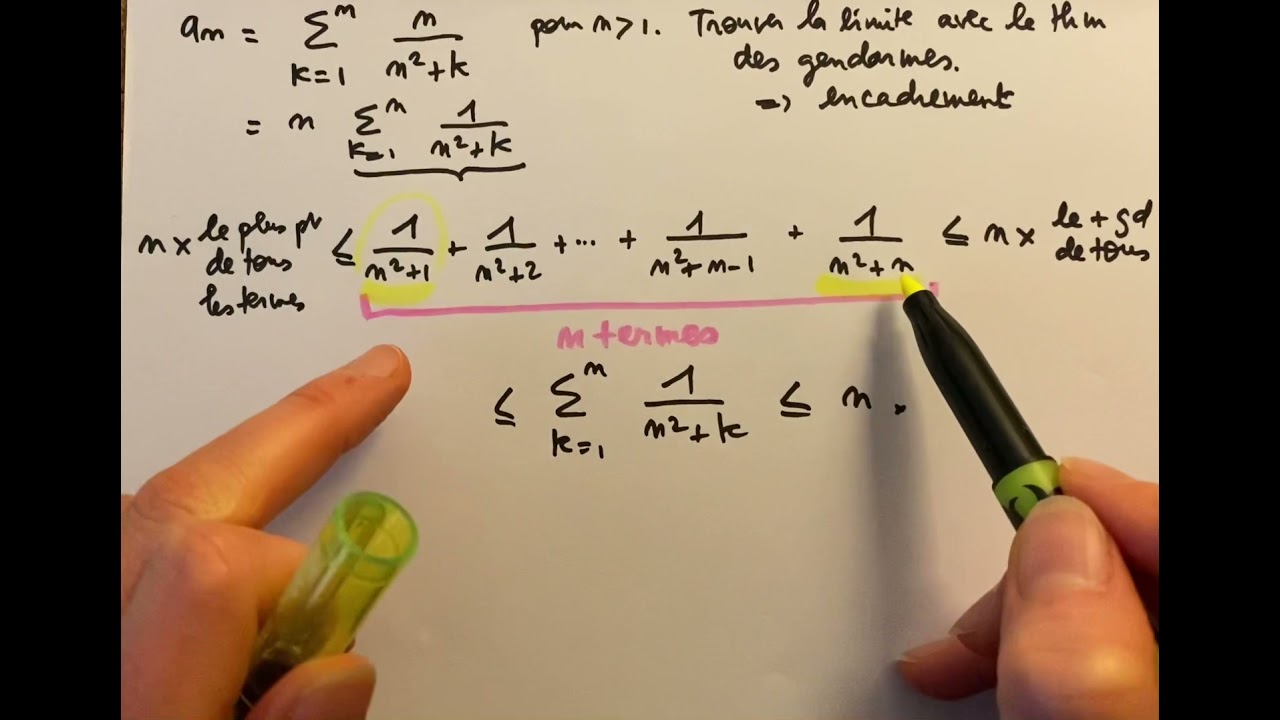 an = Σ^n_{k=1} n/(n²+k) pour n>1. Trouver la limite avec le thm
des gendarmes.
→ encadrement
= n Σ^n_{k=1} 1/(n²+k)
n × le plus pt de tous les termes ≤ 1/(n²+1) + 1/(n²+2) + ... + 1/(n²+n-1) + 1/(n²+n) ≤ n × le + gd de tous
n termes
≤ Σ^n_{k=1} 1/(n²+k) ≤ n .